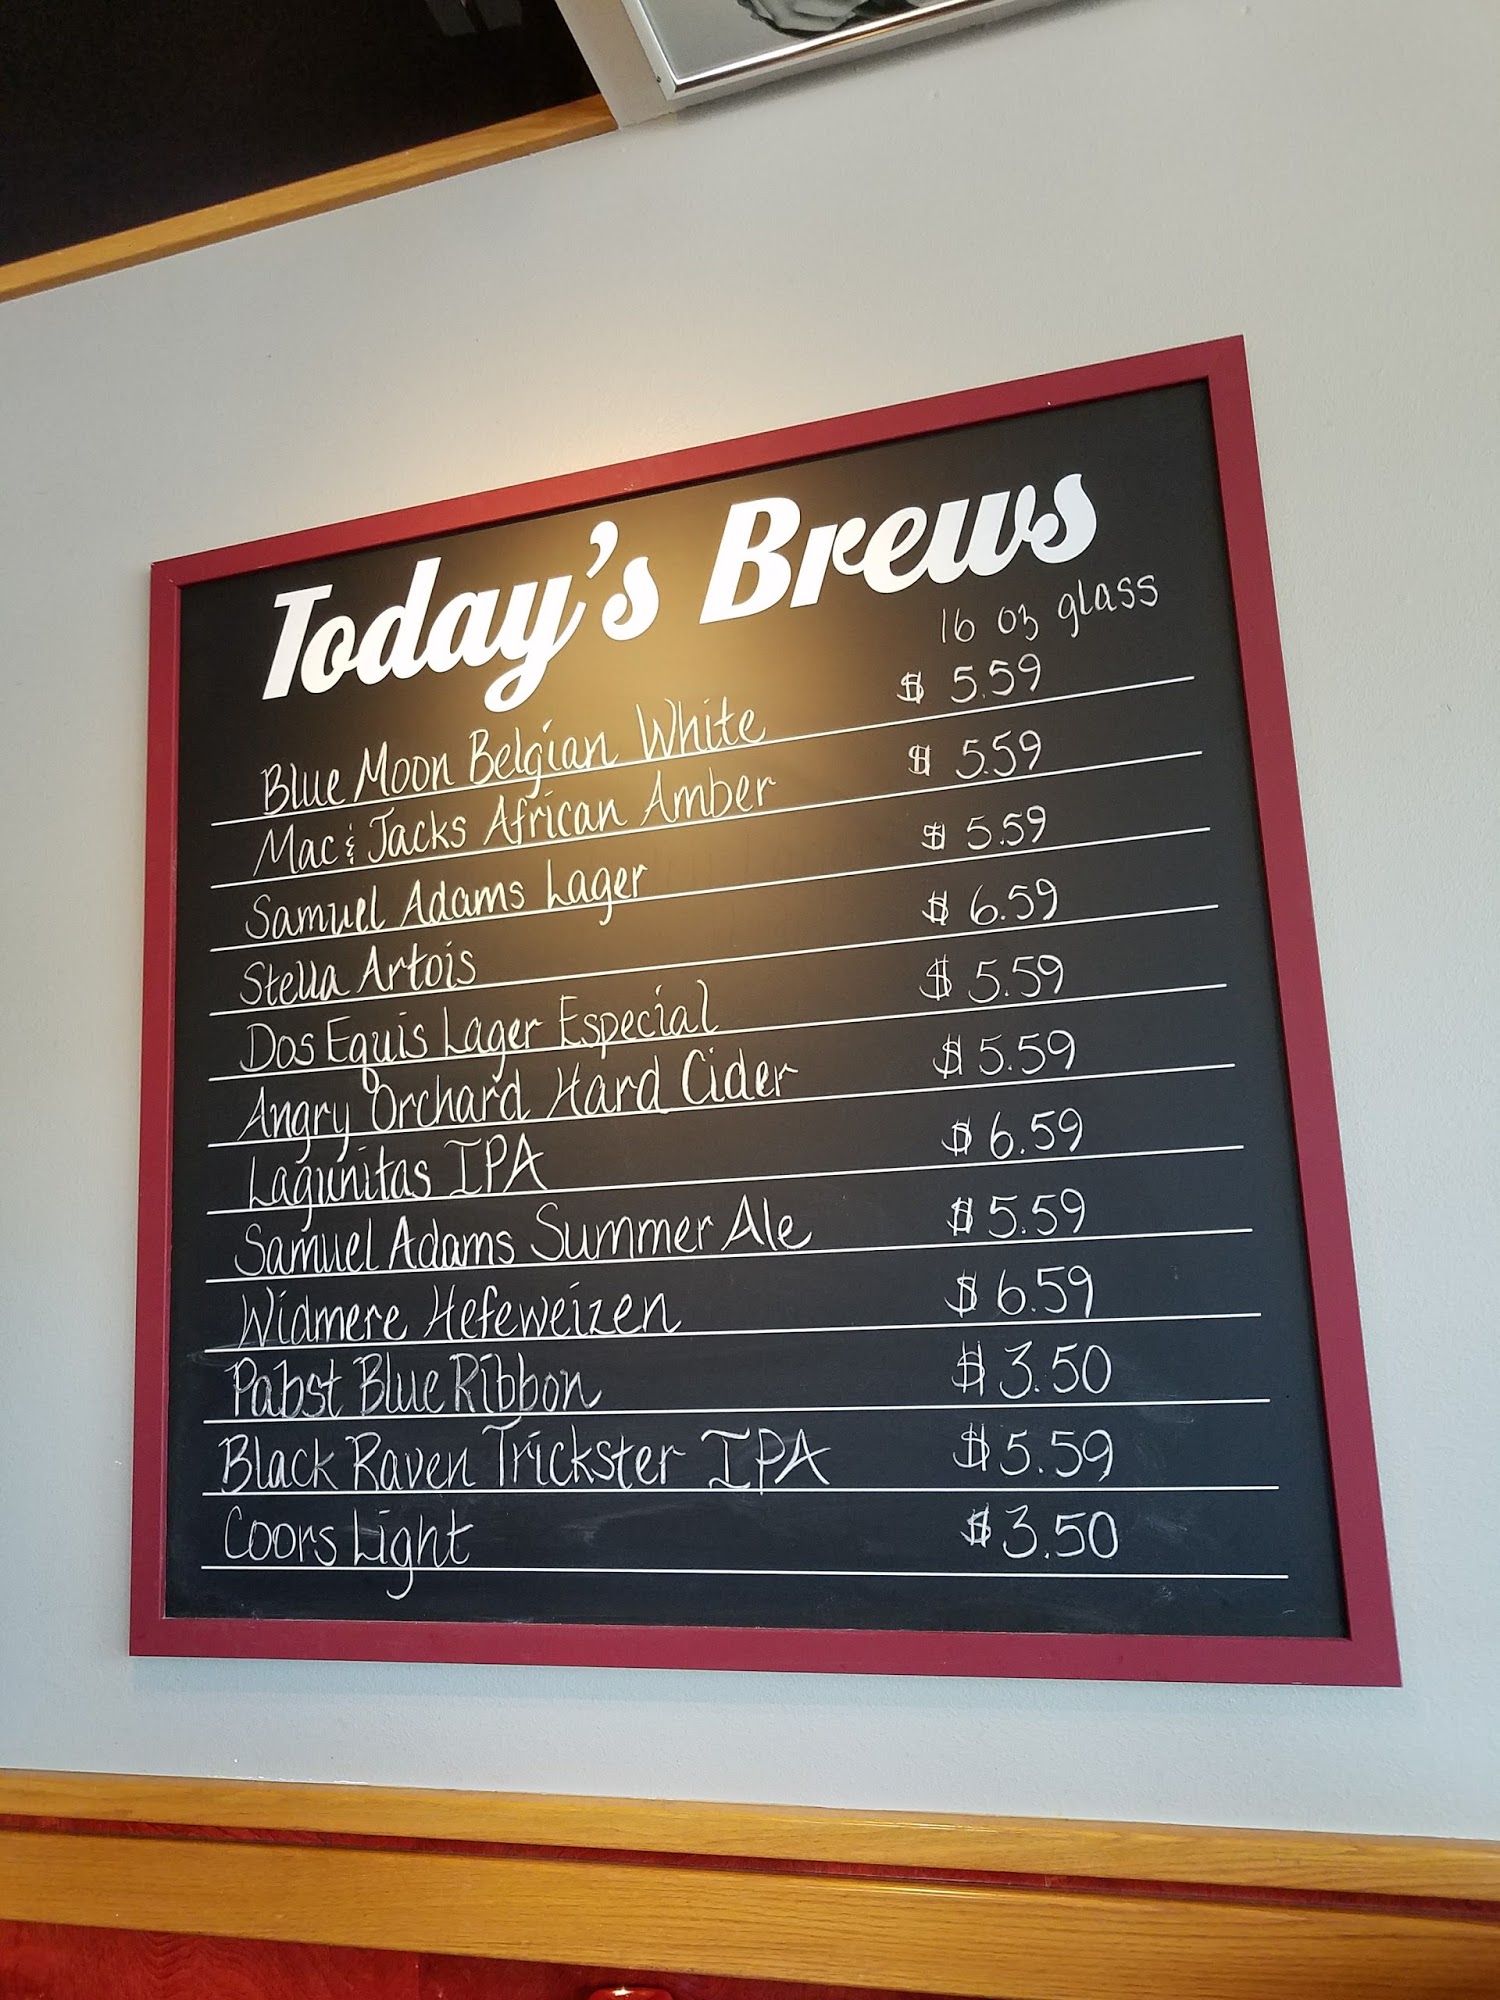 Today's Brews
16 oz glass
Blue Moon Belgian White $ 5.59
Mac & Jacks African Amber $ 5.59
Samuel Adams Lager $ 5.59
Stella Artois $ 6.59
Dos Equis Lager Especial $ 5.59
Angry Orchard Hard Cider $ 5.59
Lagunitas IPA $ 6.59
Samuel Adams Summer Ale $ 5.59
Widmere Hefeweizen $ 6.59
Pabst Blue Ribbon $ 3.50
Black Raven Trickster IPA $ 5.59
Coors Light $ 3.50